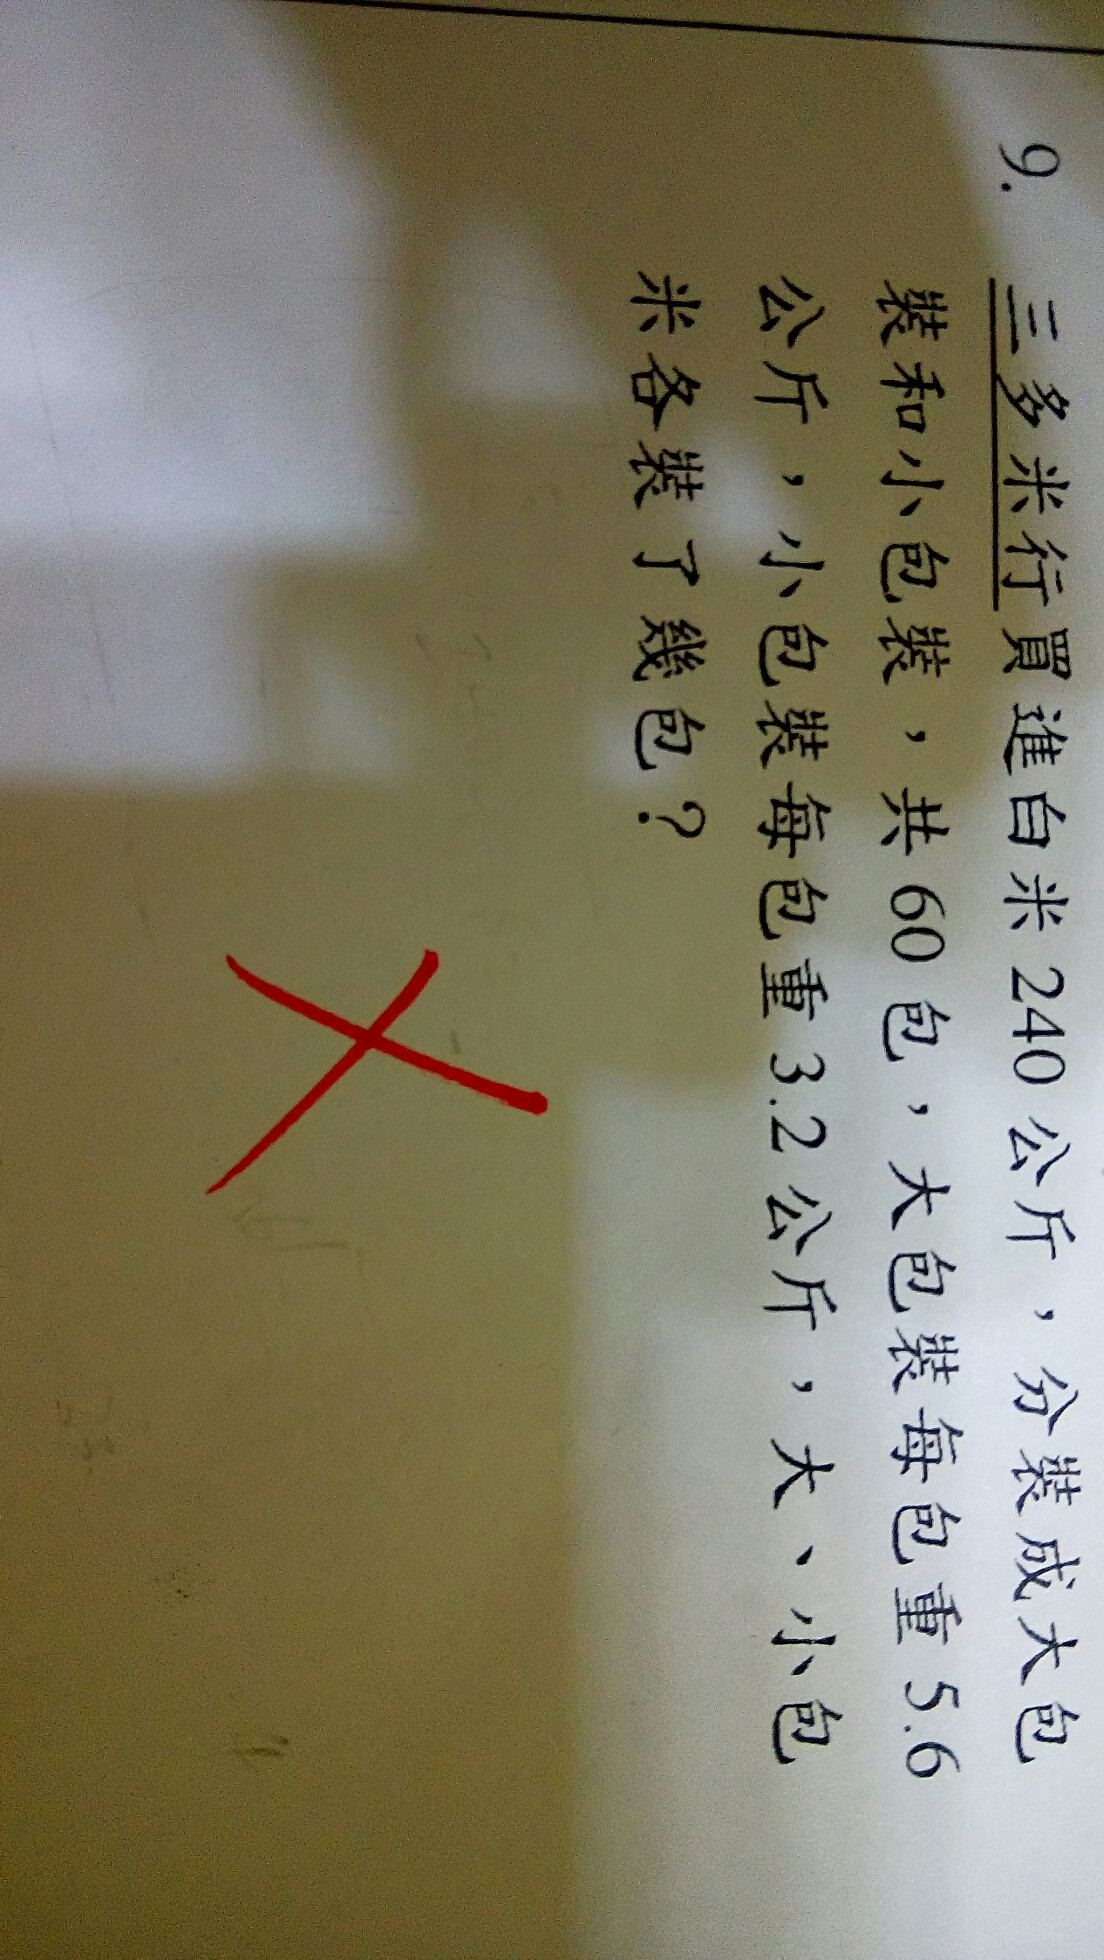 9. 三多米行買進白米240公斤，分裝成大包
裝和小包裝，共60包，大包裝每包重5.6
公斤，小包裝每包重3.2公斤，大、小包
米各裝了幾包？